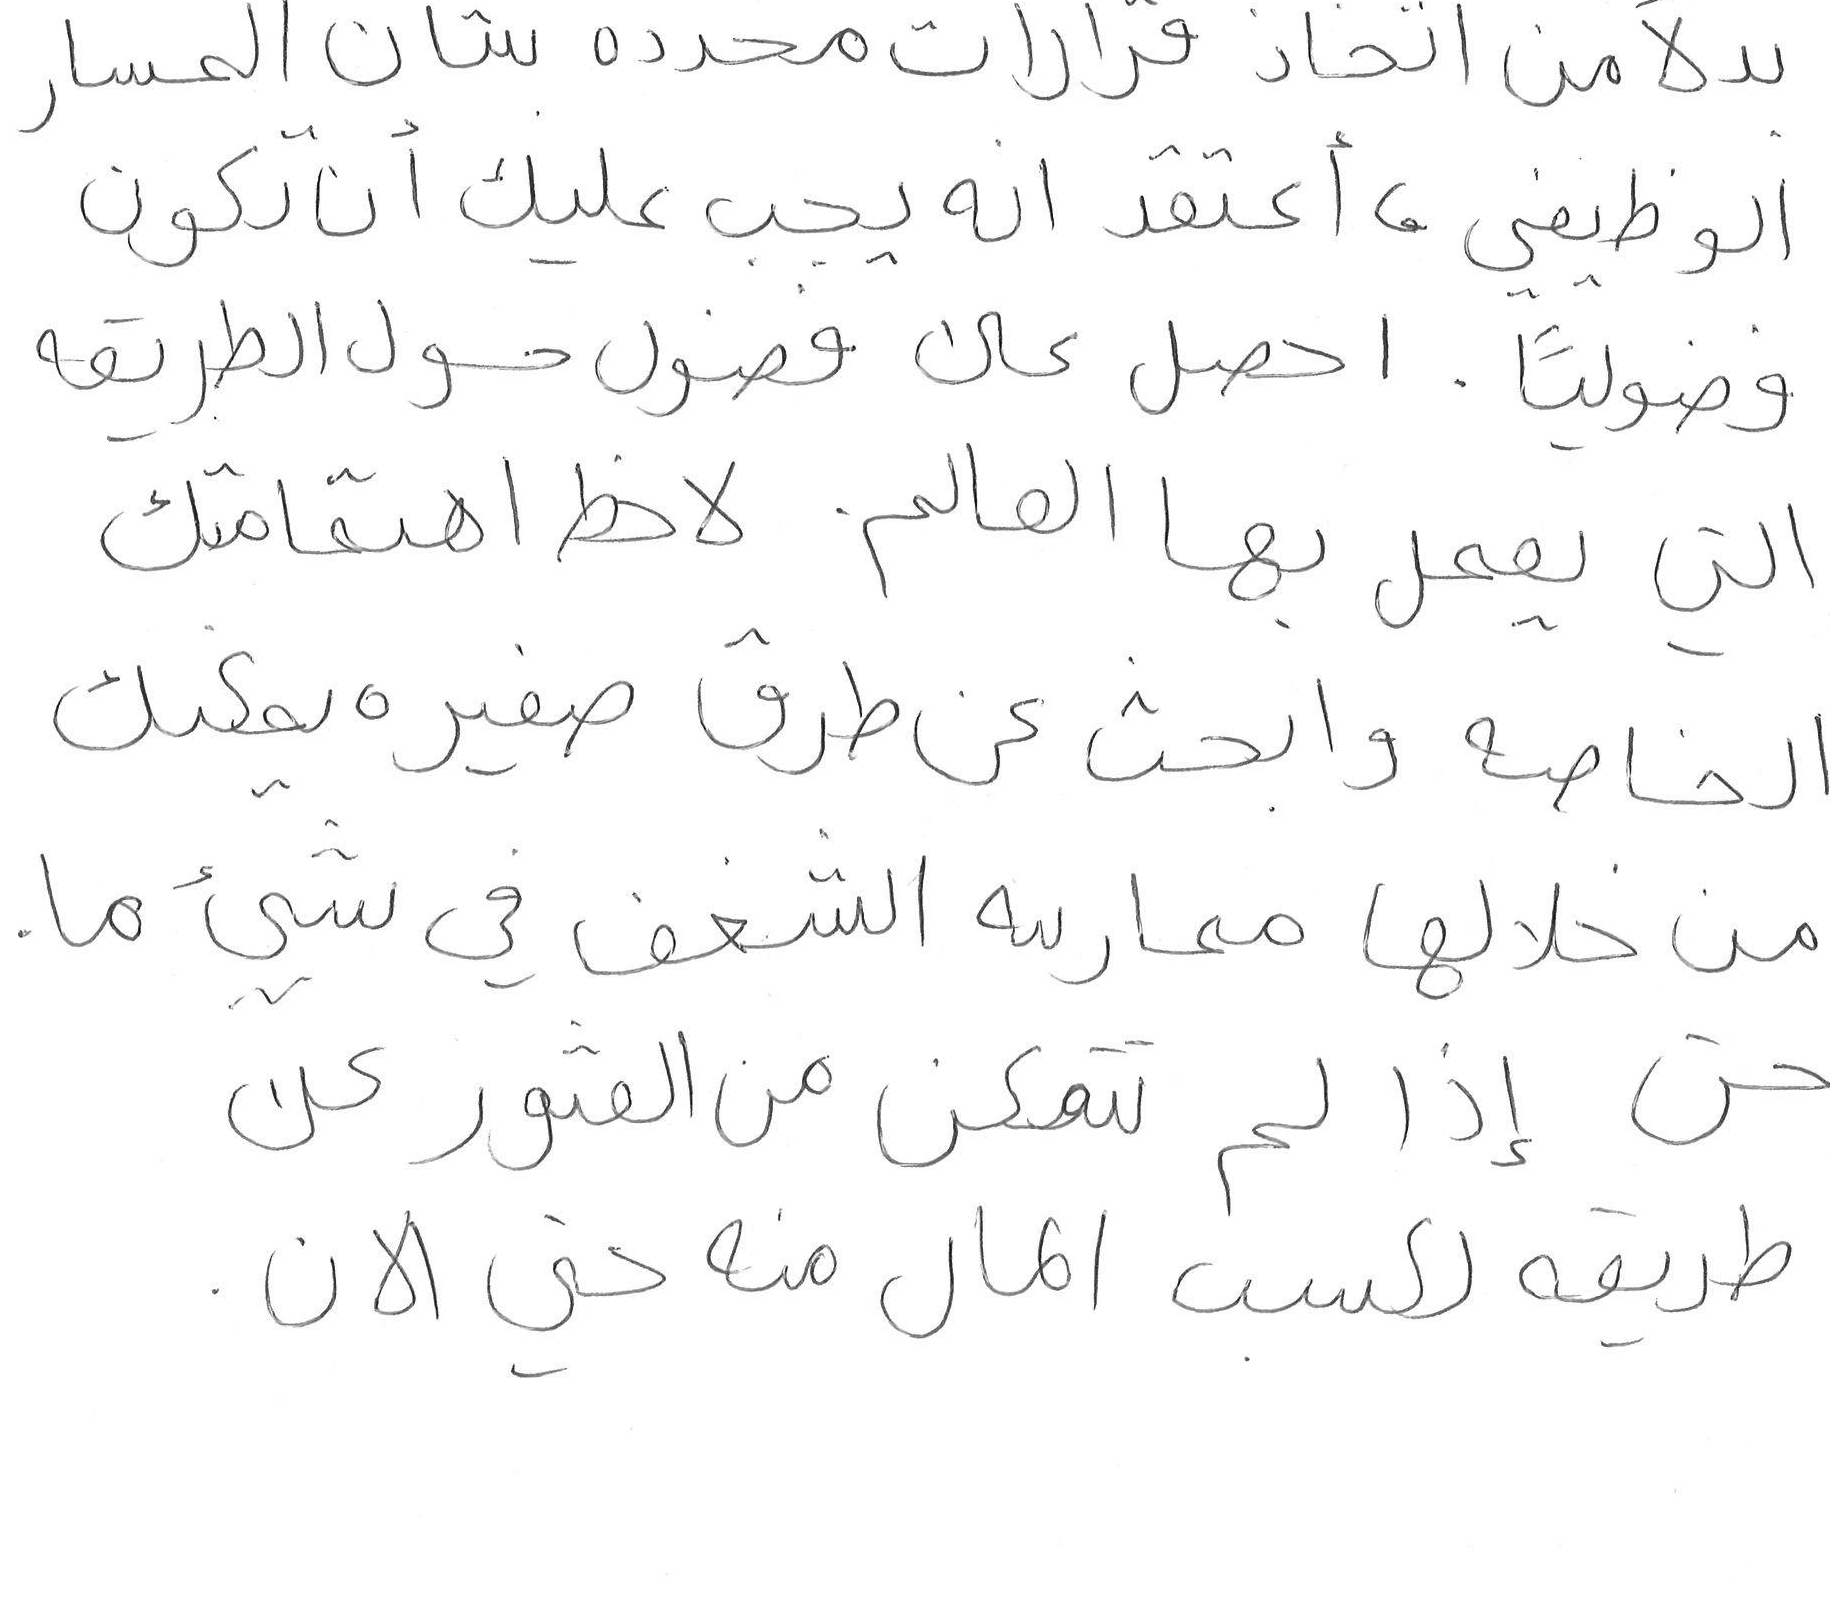 بدلاً من اتخاذ قرارات محدده بشان المسار
الوظيفي، أعتقد انه يجب عليك أن تكون
فضوليًا. احصل على فضول حول الطريقه
التي يعمل بها العالم. لاحظ اهتماماتك
الخاصه وابحث عن طرق صغيره يمكنك
من خلالها ممارسه الشغف في شيئ ما.
حتى إذا لم تتمكن من العثور على
طريقه لكسب المال منه حتي الان.